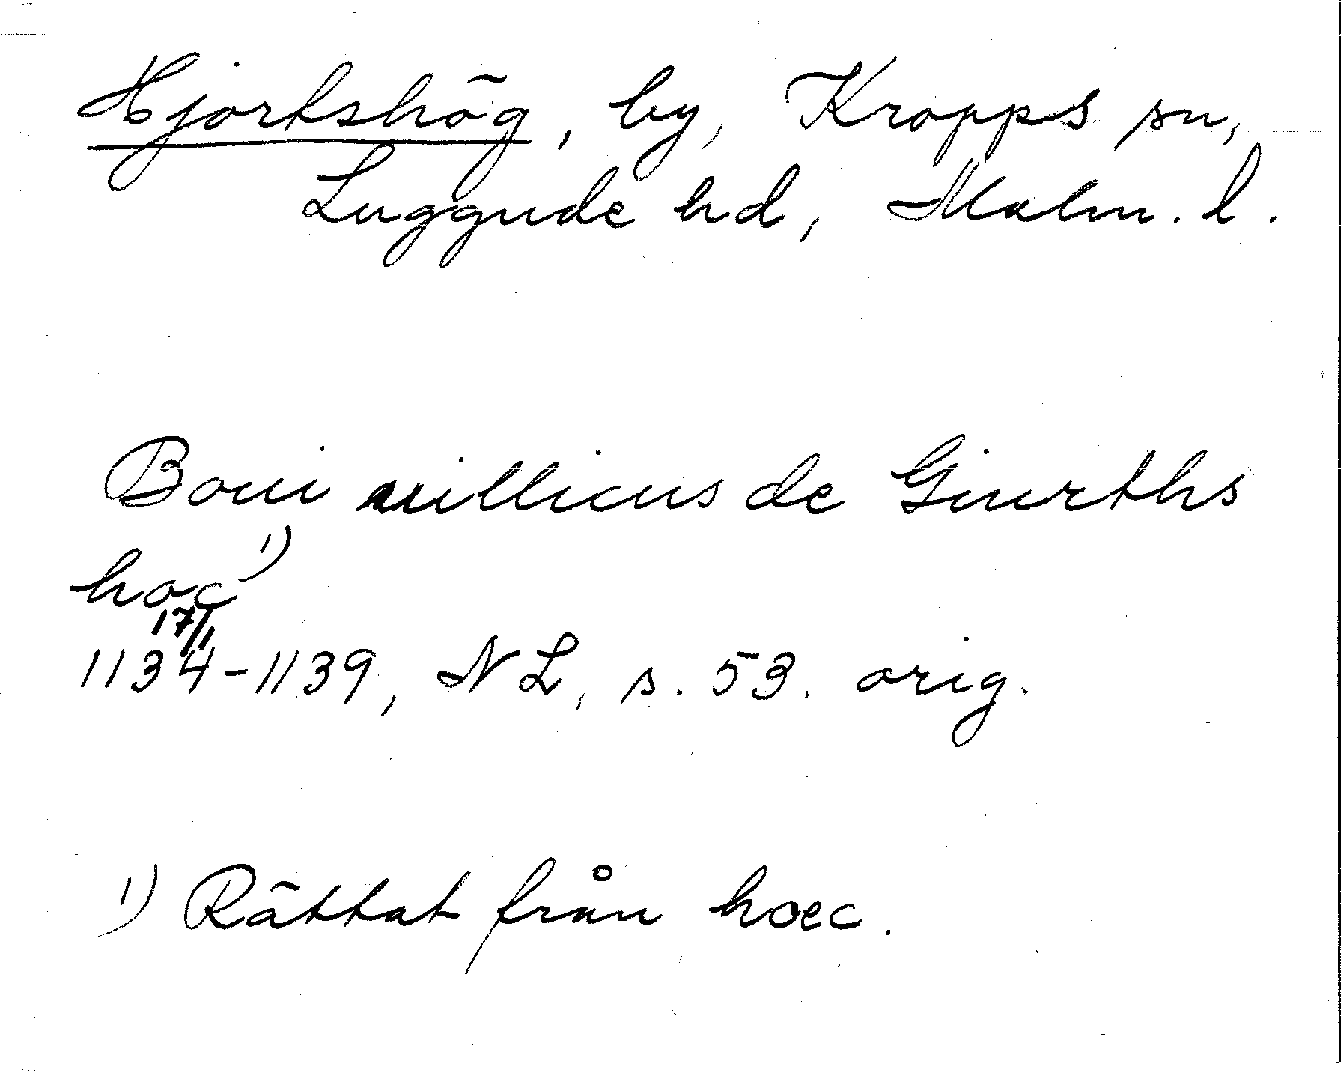 Hjortshög, by, Kropps sn,
Luggude hd, Malm. l.
Boui uillicus de Giurths
hoc 1)
17/1
1134-1139, NL, s. 53. orig.
1) Rättat från hoec.